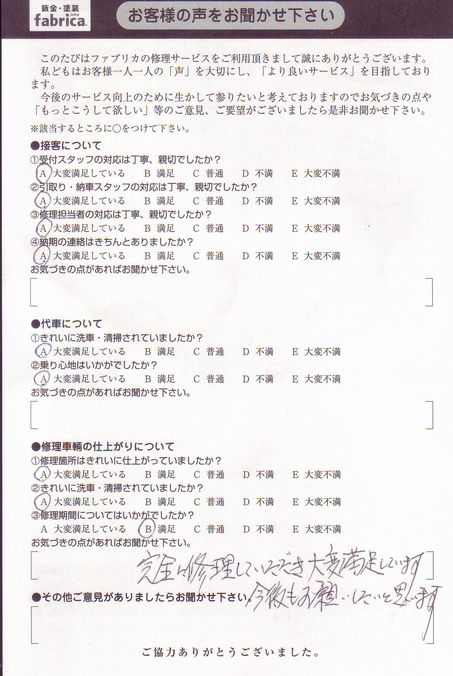 鈑金・塗装
fabrica.
お客様の声をお聞かせ下さい
このたびはファブリカの修理サービスをご利用頂きまして誠にありがとうございます。
私どもはお客様一人一人の「声」を大切にし、「より良いサービス」を目指しており
ます。
今後のサービス向上のために生かして参りたいと考えておりますのでお気づきの点や
「もっとこうして欲しい」等のご意見、ご要望がございましたら是非お聞かせ下さい。
※該当するところに○をつけて下さい。
●接客について
①受付スタッフの対応は丁寧、親切でしたか？
A 大変満足している B 満足 C 普通 D 不満 E 大変不満
②引取り・納車スタッフの対応は丁寧、親切でしたか？
A 大変満足している B 満足 C 普通 D 不満 E 大変不満
③修理担当者の対応は丁寧、親切でしたか？
A 大変満足している B 満足 C 普通 D 不満 E 大変不満
④納期の連絡はきちんとありましたか？
A 大変満足している B 満足 C 普通 D 不満 E 大変不満
お気づきの点があればお聞かせ下さい。
●代車について
①きれいに洗車・清掃されていましたか？
A 大変満足している B 満足 C 普通 D 不満 E 大変不満
②乗り心地はいかがでしたか？
A 大変満足している B 満足 C 普通 D 不満 E 大変不満
お気づきの点があればお聞かせ下さい。
●修理車輌の仕上がりについて
①修理箇所はきれいに仕上がっていましたか？
A 大変満足している B 満足 C 普通 D 不満 E 大変不満
②きれいに洗車・清掃されていましたか？
A 大変満足している B 満足 C 普通 D 不満 E 大変不満
③修理期間についてはいかがでしたか？
A 大変満足している B 満足 C 普通 D 不満 E 大変不満
お気づきの点があればお聞かせ下さい。
完全に修理していただき大変満足しています
●その他ご意見がありましたらお聞かせ下さい。
今後もお願いしたいと思います
ご協力ありがとうございました。